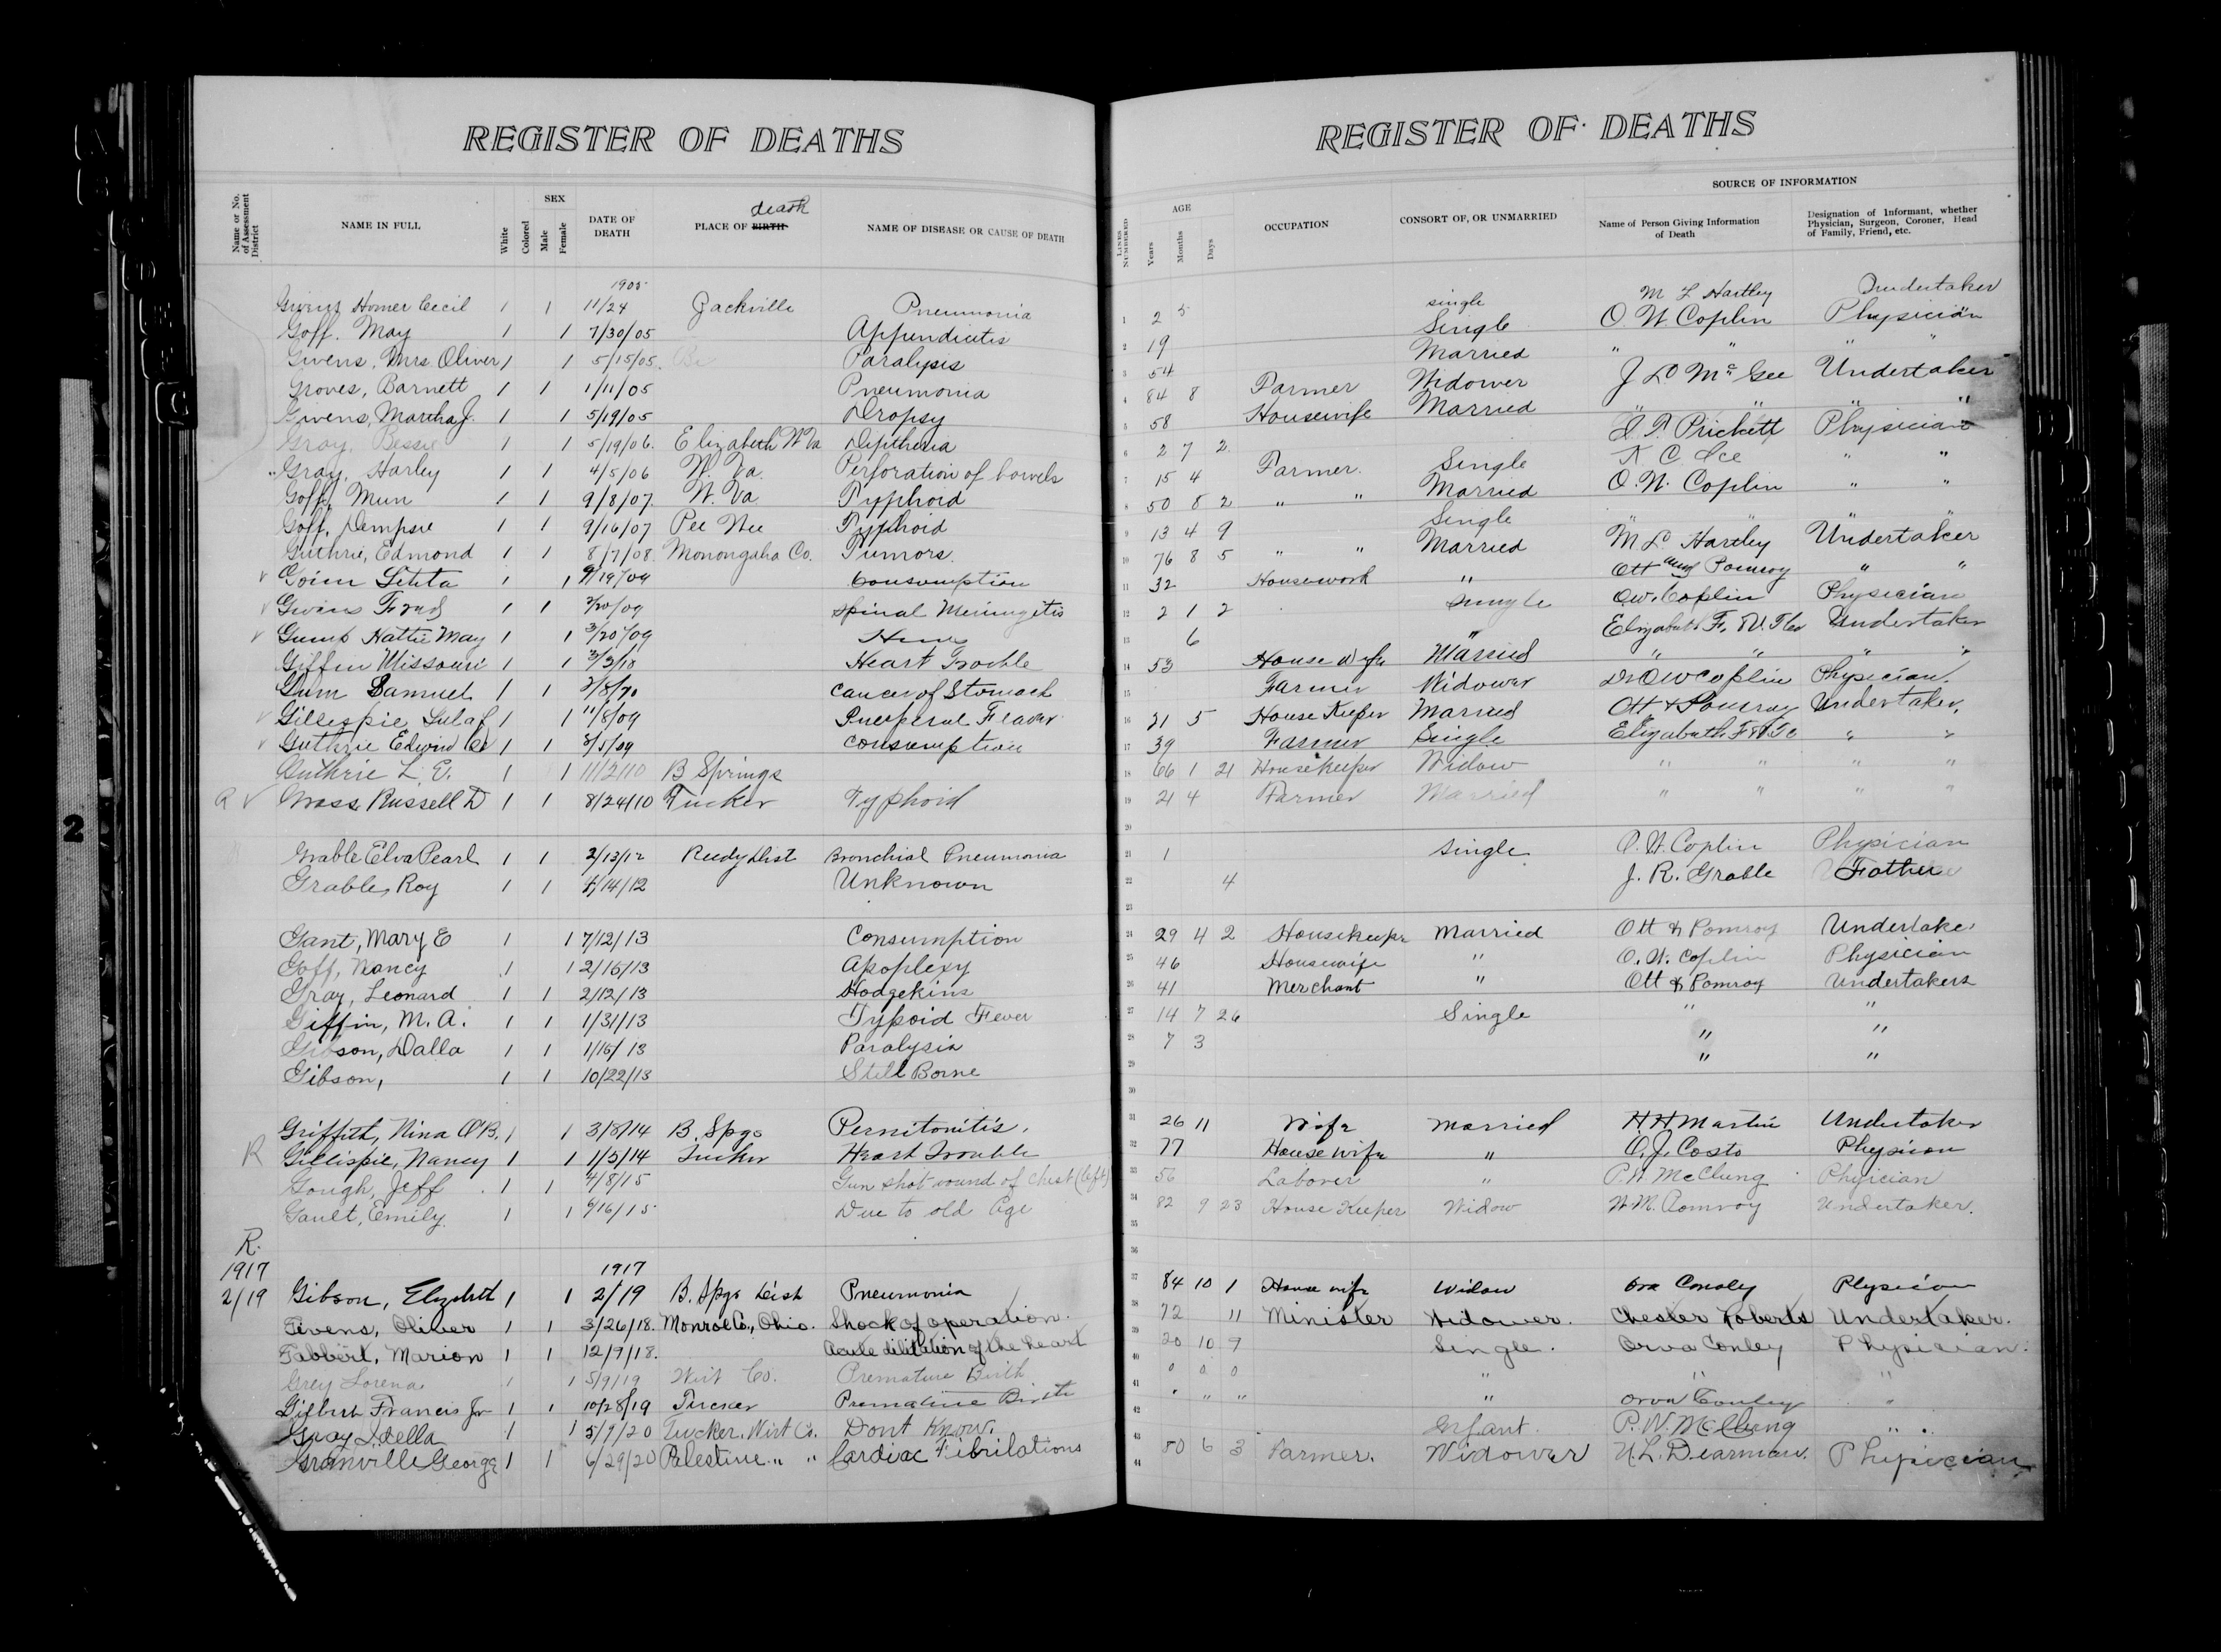 REGISTER OF DEATHS
Name or No. of Assessment District
NAME IN FULL
White
Colored
SEX
Male
Female
DATE OF DEATH
PLACE OF BIRTH death
NAME OF DISEASE OR CAUSE OF DEATH
1905
Homer Cecil 1 1 11/24 Zackville Pneumonia
Goff, May 1 1 7/30/05 Appendicitis
Givens, Mrs Oliver 1 1 5/15/05.
Paralysis
Groves, Barnett 1 1 1/11/05 Pneumonia
Givens, Martha J. 1 1 5/19/05 Dropsy
Gray, Bessie 1 1 5/19/06. Elizabeth W Va Diptheria
" Gray, Harley 1 1 4/5/06 W. Va. Perforation of bowels
Goff, Mun 1 1 9/8/07. W. Va Typhoid
Goff, Dempsie 1 1 9/16/07 Pee Wee Typhoid
Guthrie, Edmond 1 1 8/7/08. Monongaha Co. Tumors.
v 1 1 9/19/09 Consumption
v Givins Fred 1 1 2/20/09 Spinal Meningetis
v Gump Hattie May 1 1 3/20/09
Giffin Missouri 1 1 3/3/10 Heart Trouble
Gum Samuel 1 1 Cancer of Stomach
v Gillespie Lula 1 1 11/8/09
v Guthrie Edwin 1 1 8/5/09 Consumption
Guthrie L. E. 1 1 11/2/10 B Springs
v Grass Russell D 1 1 8/24/10 Tucker Typhoid
Grable Elva Pearl 1 1 2/13/12 Reedy Dist Bronchial Pneumonia
Grable, Roy 1 1 4/14/12 Unknown
Gant, Mary E 1 1 7/12/13 Consumption
Goff, Nancy 1 1 2/15/13 Apoplexy
Gray, Leonard 1 1 2/12/13 Hodgekins
Giffin, M. A. 1 1 1/31/13 Typoid Fever
Gibson, Dalla 1 1 1/16/13 Paralysis
Gibson, 1 1 10/22/13 Still Borne
Griffith, Nina O'B. 1 1 3/8/14 B. Spgs Pernitonitis.
R Gillispie, Nancy 1 1 1/5/14 Tucker Heart Trouble
Gough, Jeff 1 1 4/8/15 Gun shot wound of chest (left)
Gault, Emily 1 1 6/16/15 Due to old Age
R.
1917 1917
2/19 Gibson, Elizabeth 1 1 2/19 B. Spgs Dist Pneumonia
Givens, Oliver 1 1 3/26/18. Monroe Co., Ohio. Shock of operation.
Gabbert, Marion 1 1 12/9/18. Acute dilitation of the heart
Grey Lorena 1 1 5/9/19 Wirt Co. Premature Birth
Gilbert Francis Jr 1 1 10/28/19 Tucker Premature Birth
Gray Idella 1 1 5/9/20 Tucker, Wirt Co. Dont Know.
Granville George 1 1 6/29/20 Palestine " " Cardiac Fibrilations
2
REGISTER OF DEATHS
LINES NUMBERED
AGE
Years
Months
Days
OCCUPATION
CONSORT OF, OR UNMARRIED
SOURCE OF INFORMATION
Name of Person Giving Information of Death
Designation of Informant, whether Physician, Surgeon, Coroner, Head of Family, Friend, etc.
1 2 5 single M L Hartley Undertaker
2 19 Single O. W. Coplin Physician
3 54 Married " " " "
4 84 8 Farmer Widower J LO McGee Undertaker
5 58 Housewife Married " " " "
6 2 7 2 Prickett Physician
7 15 4 Farmer. Single Ice " "
8 50 8 2 " " Married O. W. Coplin " "
9 13 4 9 Single " " " "
10 76 8 5 " " Married M L Hartley Undertaker
11 32 Housework " Ott and Pomroy " "
12 2 1 2 single O.W. Coplin Physician
13 6 " Elizabeth F. & U. Undertaker
14 53 House Wife Married " " " "
15 Farmer Widower Dr O W Coplin Physician.
16 21 5 House Keeper Married Ott & Pomroy Undertaker,
17 39 Farmer Single Elizabeth F & U Co " "
18 66 1 21 Housekeeper Widow " " " "
19 21 4 Farmer Married " " " "
20
21 1 single. O. W. Coplin Physician
22 4 J. R. Grable Father
23
24 29 4 2 Housekeeper Married Ott & Pomroy Undertaker
25 46 Housewife " O. W. Coplin Physician
26 41 Merchant " Ott & Pomroy Undertakers
27 14 7 26 Single " "
28 7 3 " "
29 " "
30
31 26 11 Wife Married H H Martin Undertaker
32 77 House wife " O. J. Casto Physicon
33 56 Laborer " P. W McClung Physician
34 82 9 23 House Keeper Widow W. M. Pomroy Undertaker.
35
36
37 84 10 1 House wife Widow Ora Conoly Physician
38 72 11 Minister Widower. Chester Roberts Undertaker.
39 20 10 9 Single. Orva Conley Physician.
40 0 0 0 " " "
41 " " " " Orva Conley "
42 Infant. P. W. McClung " "
43 50 6 3 Farmer. Widower U. L. Dearman. Physician
44